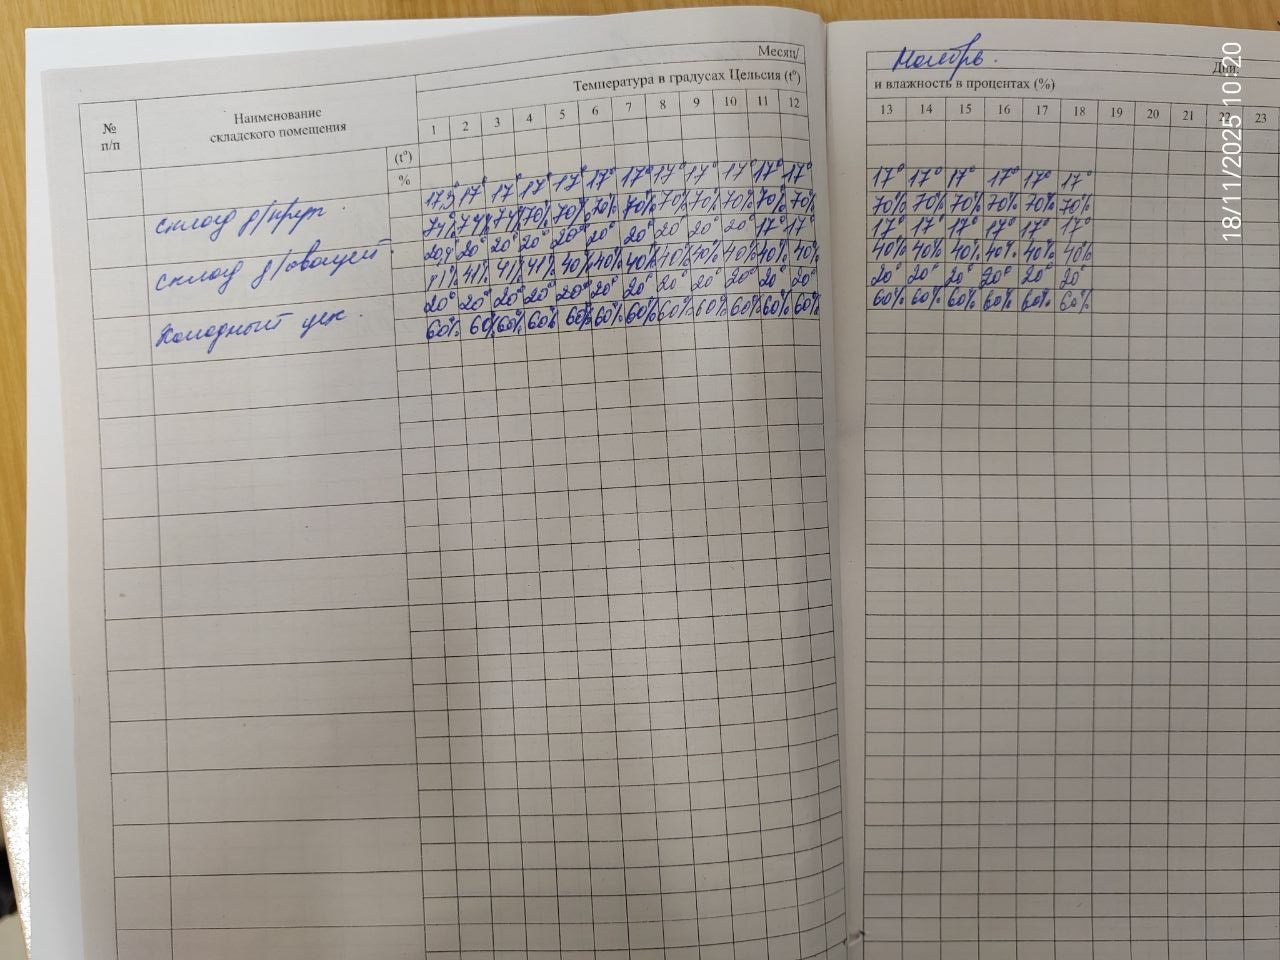 Месяц/ Ноябрь. Дни:
Температура в градусах Цельсия (t°) и влажность в процентах (%)
№ п/п
Наименование складского помещения
1 2 3 4 5 6 7 8 9 10 11 12 13 14 15 16 17 18 19 20 21 22 23
(t°)
%
17,5° 17° 17° 17° 17° 17° 17° 17° 17° 17° 17° 17° 17° 17° 17° 17° 17° 17°
склад д/
74% 74% 74% 70% 70% 70% 70% 70% 70% 70% 70% 70% 70% 70% 70% 70% 70% 70%
20° 20° 20° 20° 20° 20° 20 20° 20° 17° 17° 17° 17° 17° 17° 17° 17°
склад д/овощей.
41% 41% 41% 41% 40% 40% 40% 40% 40% 40% 40% 40% 40% 40% 40% 40% 40% 40%
20° 20° 20° 20° 20° 20° 20° 20° 20° 20° 20° 20° 20° 20° 20° 20° 20° 20°
Холодный цех.
60% 60% 60% 60% 60% 60% 60% 60% 60% 60% 60% 60% 60% 60% 60% 60% 60% 60%
18/11/2025 10:20